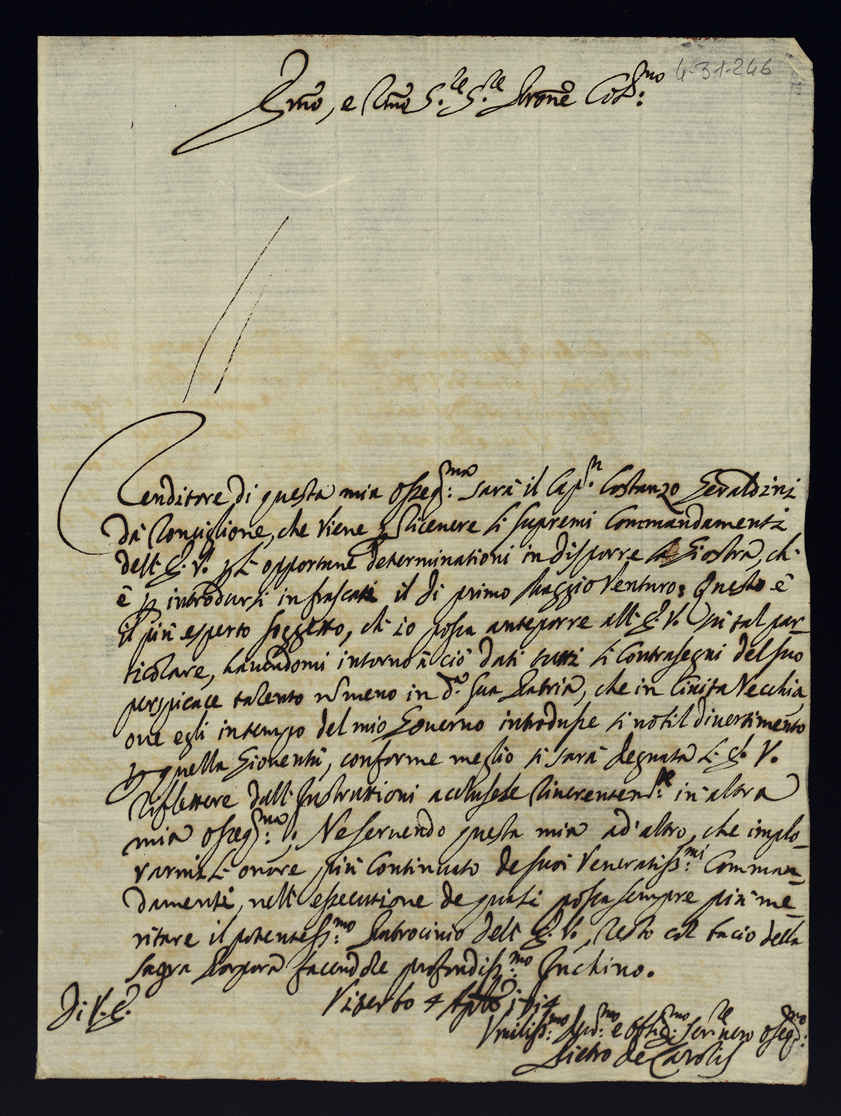 4-31-246
Em̃o, e Rm̃o S.re S.re Pron̄e Col:mo
Renditore di questa mia osseq:ma sarà il Cap:n Costanzo Geraldini
da Ronciglione, che viene p ricevere li supremi Commandamenti
dell'E. V. p l'opportune determinationi in disporre la Giostra, ch'
è p introdursi in frascati il di primo Maggio Venturo; Questo è
il più esperto soggetto, ch'io possa anteporre all'E. V. in tal par-
ticolare, havendomi intorno à ciò dati tutti li Contrasegni del suo
perspicace talento nō meno in d.a sua Patria, che in Civita Vecchia
ove egli in tempo del mio Governo introdusse simil divertimento
p quella Gioventù, conforme meglio si sarà degnata l'E. V.
riflettere dall'Instruttioni accluseLe riverentem.te in altra
mia osseq:ma; Ne servendo questa mia ad'altro, che implo-
rarmi l'onore più Continuato de suoi Veneratiss:mi Comman-
damenti, nell'essecutione de quali possa sempre più me-
ritare il potentess:mo Patrocinio dell'E. V., resto col bacio della
sagra Porpora facendole profondiss:mo Inchino.
Di V. E.
Viterbo 4 Aple
Umiliss:mo Dev:mo e Oblig:mo Ser:re vero osseq:mo
Pietro de Carolis